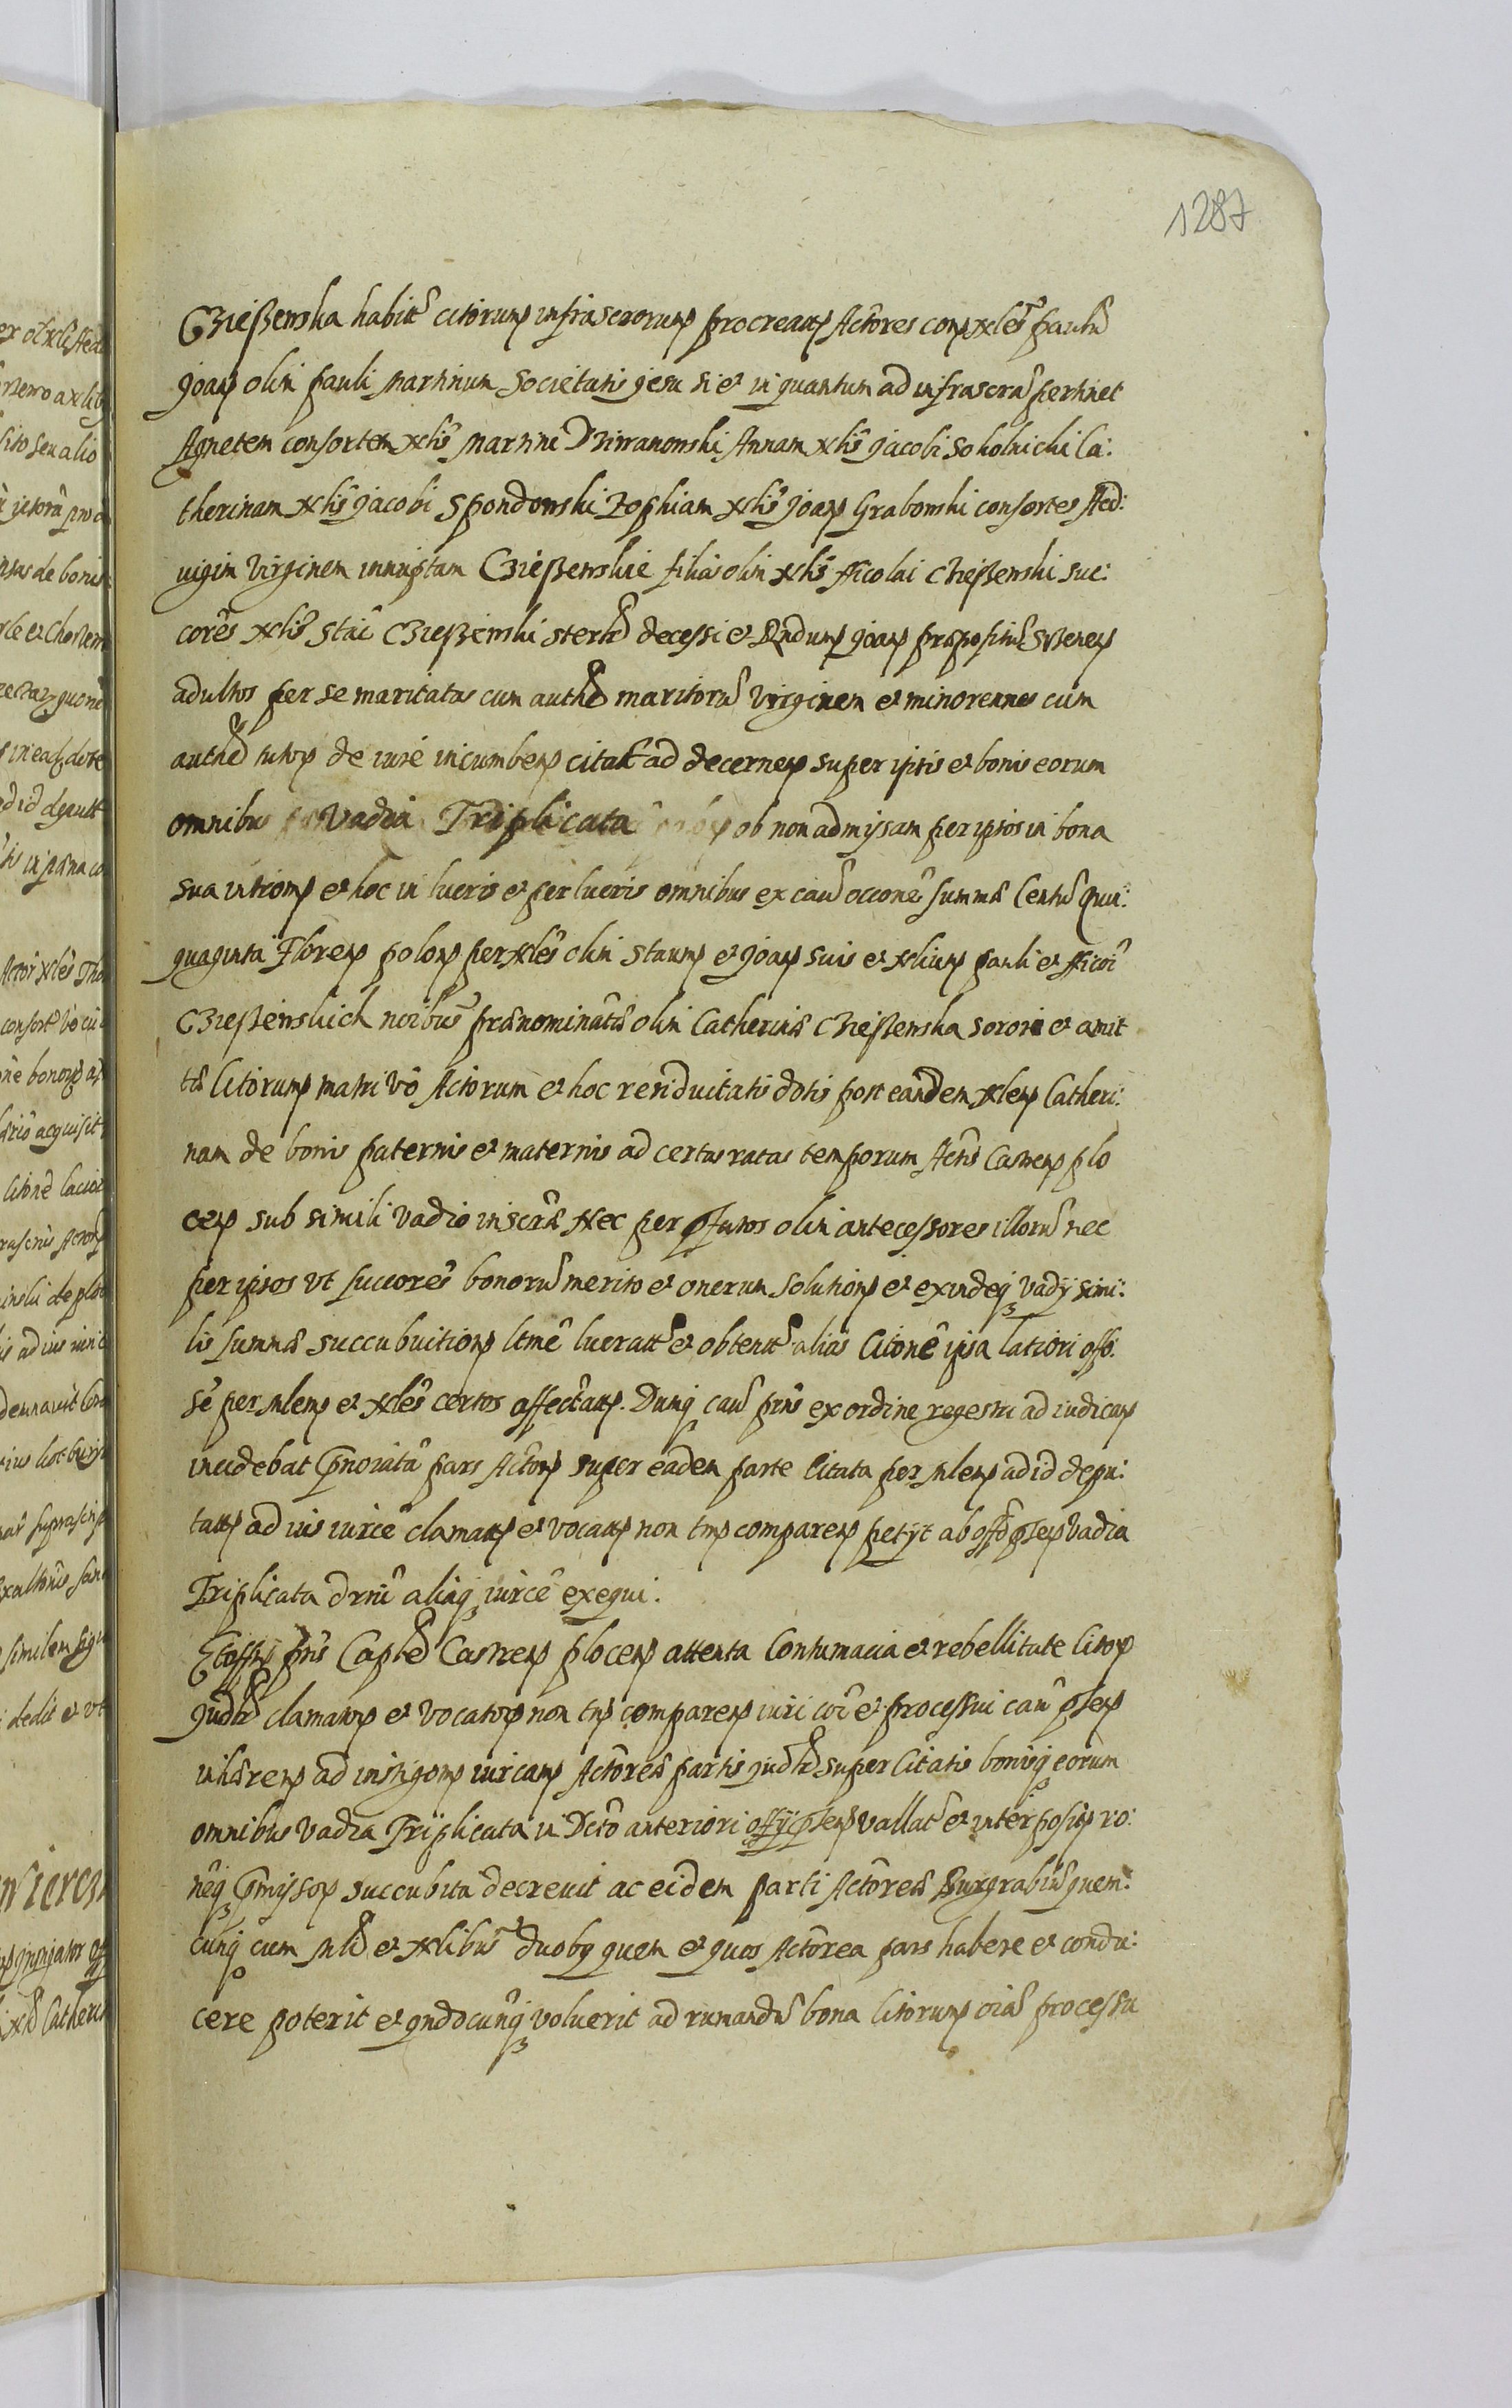 1287
Czieszewska habit citorum infrascrorum procreatt Actores contra Nles Paulu
Joan olim Pauli Martinum Societatis Jesu si et in quantum ad infrascra pertinet
Agnetem consortem Nlis Martini Drwanowski Annam Nlis Jacobi Sokolnicki Ca:
therinam Nlis Jacobi Spondowski Zophiam Nlis Joan Grabowski consortes Hed:
vigim Virginem innuptam Czieszewskie filias olim Nlis Nicolai Czieszewski suc:
cores Nlis Stai Czieszewski sterilr decessi et Rndum Joan propositu
adultos per se maritatas cum authe maritoru Virginem et minorennes cum
authe tutor de iure incumben citat ad decernen super ipsis et bonis eorum
omnibus Vadia Triplicata ob non admissam per ipsos in bona
sua introm et hoc in lucris et perlucris omnibus ex cau occone summa Centu Quin:
quaginta Floren polon per Nles olim Staum et Joan suis et Nlium Pauli et Nicoi
Czieszewskich noibus prænominata olim Catherina Czieszewska sorori et amit
tæ Citorum matri vo Actorum et hoc residuitatis dotis post eandem Nlem Catheri:
nam de bonis paternis et maternis ad certas ratas temporum Actis Castren Plo
cen sub simili vadio inscræ Nec per pfatos olim antecessores illoru nec
per ipsos ut succores bonoru merito et onerum solutiom et exindeq vadij simi:
lis summæ succubuitiom ltme lucratt et obtent alias Citone ipsa latiori offo.
se per Mlem et Nles certos affectatt. Dumq cau prns ex ordine regestri ad iudican
incidebat Pnoiata pars Actor super eadem parte Citata per Mlem ad id depu:
tatt ad ius iurce clamatt et vocatt non tm comparen petijt ab offo psen Vadia
Triplicata drni aliaq iurce exequi.
Et offm prns Caple Castren Plocen attenta Contumacia et rebellitate Citor
Judlr clamator et vocator non tm comparen iuri coi et processui cau psen
inhæren ad instigom iurcam Actoreæ partis Judlr super Citatis bonisq eorum
omnibus Vadia Triplicata in Dcto anteriori offij psen vallat et interposit ro:
neq Pmissor succubita decrevit ac eidem parti Actoreæ Burgrabiu quem:
cunq cum Mli et Nlibus duobq quem et quos Actorea pars habere et condu:
cere poterit et qndocunq voluerit ad rumandu bona Citorum oia processu